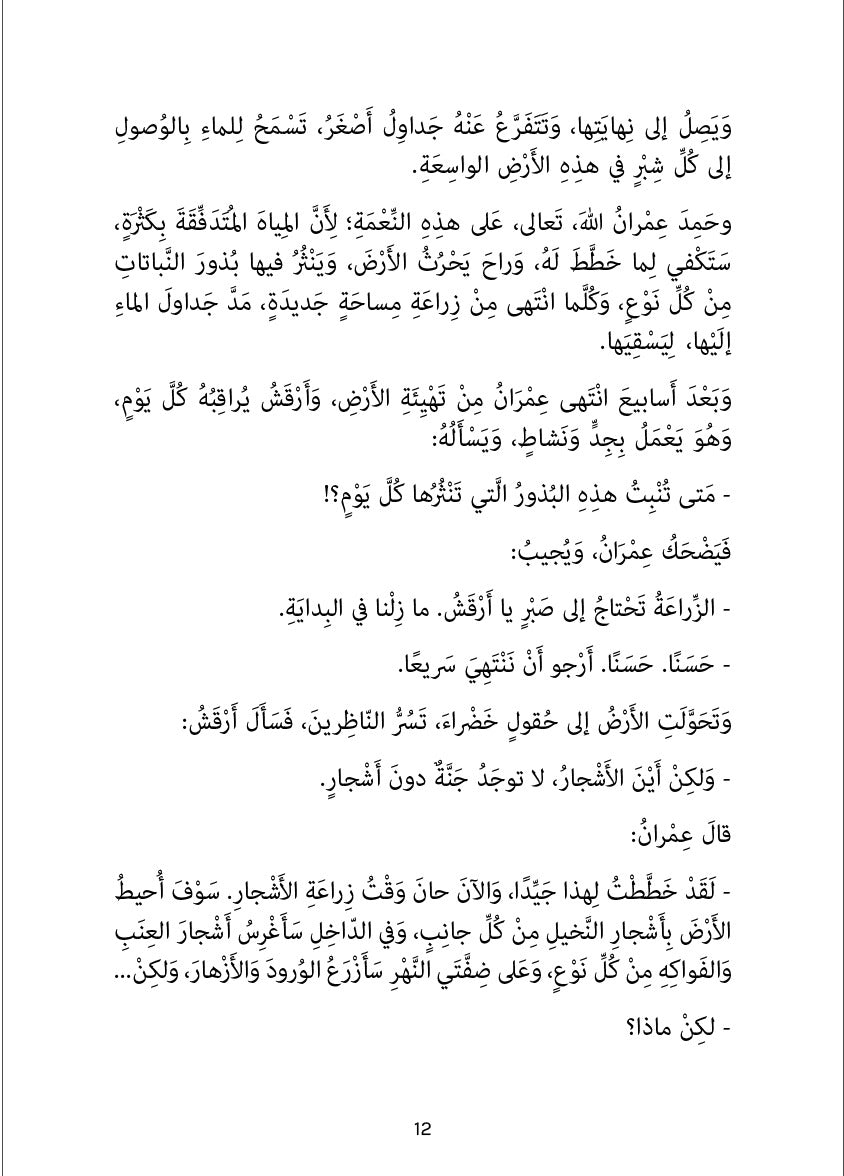 وَيَصِلُ إلى نِهايَتِها، وَتَتَفَرَّعُ عَنْهُ جَداوِلُ أَصْغَرُ، تَسْمَحُ لِلماءِ بِالوُصولِ
إلى كُلِّ شِبْرٍ في هذِهِ الأَرْضِ الواسِعَةِ.
وحَمِدَ عِمْرانُ اللهَ، تَعالى، عَلى هذِهِ النِّعْمَةِ؛ لِأَنَّ المِياهَ المُتَدَفِّقَةَ بِكَثْرَةٍ،
سَتَكْفي لِما خَطَّطَ لَهُ، وَراحَ يَحْرُثُ الأَرْضَ، وَيَنْثُرُ فيها بُذورَ النَّباتاتِ
مِنْ كُلِّ نَوْعٍ، وَكُلَّما انْتَهى مِنْ زِراعَةِ مِساحَةٍ جَديدَةٍ، مَدَّ جَداولَ الماءِ
إلَيْها، لِيَسْقِيَها.
وَبَعْدَ أَسابيعَ انْتَهى عِمْرَانُ مِنْ تَهْيِئَةِ الأَرْضِ، وَأَرْقَشُ يُراقِبُهُ كُلَّ يَوْمٍ،
وَهُوَ يَعْمَلُ بِجِدٍّ وَنَشاطٍ، وَيَسْأَلُهُ:
- مَتى تُنْبِتُ هذِهِ البُذورُ الَّتي تَنْثُرُها كُلَّ يَوْمٍ؟!
فَيَضْحَكُ عِمْرَانُ، وَيُجيبُ:
- الزِّراعَةُ تَحْتاجُ إلى صَبْرٍ يا أَرْقَشُ. ما زِلْنا في البِدايَةِ.
- حَسَنًا. حَسَنًا. أَرْجو أَنْ نَنْتَهِيَ سَريعًا.
وَتَحَوَّلَتِ الأَرْضُ إلى حُقولٍ خَضْراءَ، تَسُرُّ النّاظِرينَ، فَسَأَلَ أَرْقَشُ:
- وَلكِنْ أَيْنَ الأَشْجارُ، لا توجَدُ جَنَّةٌ دونَ أَشْجارٍ.
قالَ عِمْرانُ:
- لَقَدْ خَطَّطْتُ لِهذا جَيِّدًا، وَالآنَ حانَ وَقْتُ زِراعَةِ الأَشْجارِ. سَوْفَ أُحيطُ
الأَرْضَ بِأَشْجارِ النَّخيلِ مِنْ كُلِّ جانِبٍ، وَفي الدّاخِلِ سَأَغْرِسُ أَشْجارَ العِنَبِ
وَالفَواكِهِ مِنْ كُلِّ نَوْعٍ، وَعَلى ضِفَّتَي النَّهْرِ سَأَزْرَعُ الوُرودَ وَالأَزْهارَ، وَلكِنْ...
- لكِنْ ماذا؟
12